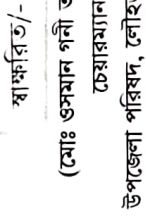 স্বাক্ষরিত/-
(মোঃ ওসমান গনী ত
চেয়ারম্যান
উপজেলা পরিষদ, লৌহ